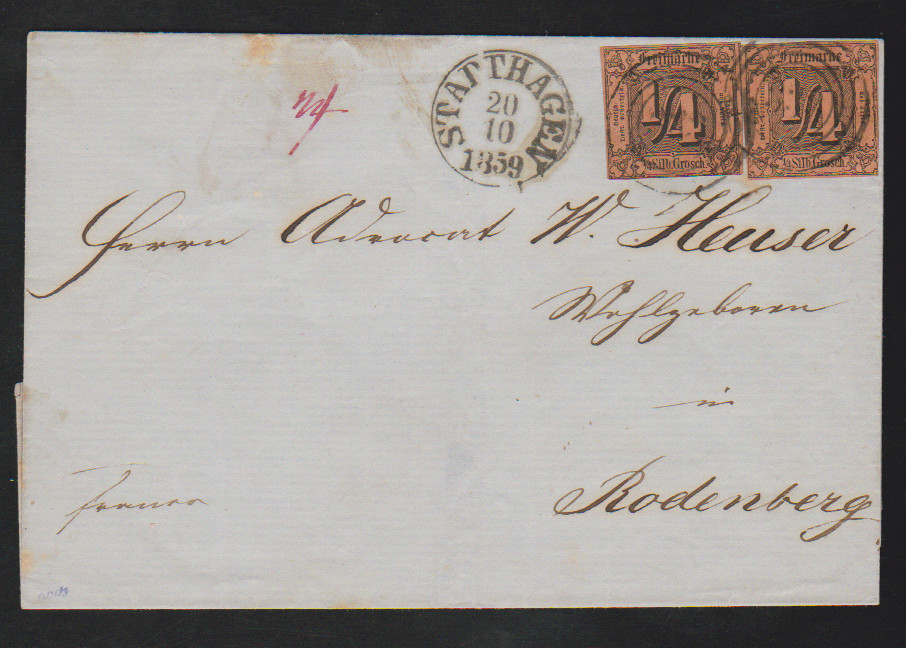 STADTHAGEN
20
10
1859
Freimarke
1/4
1/4 Silb. Grosch
Freimarke
1/4
1/4 Silb. Grosch
Herrn Advocat W. Heuser
Wohlgeboren
in
Rodenberg
franco